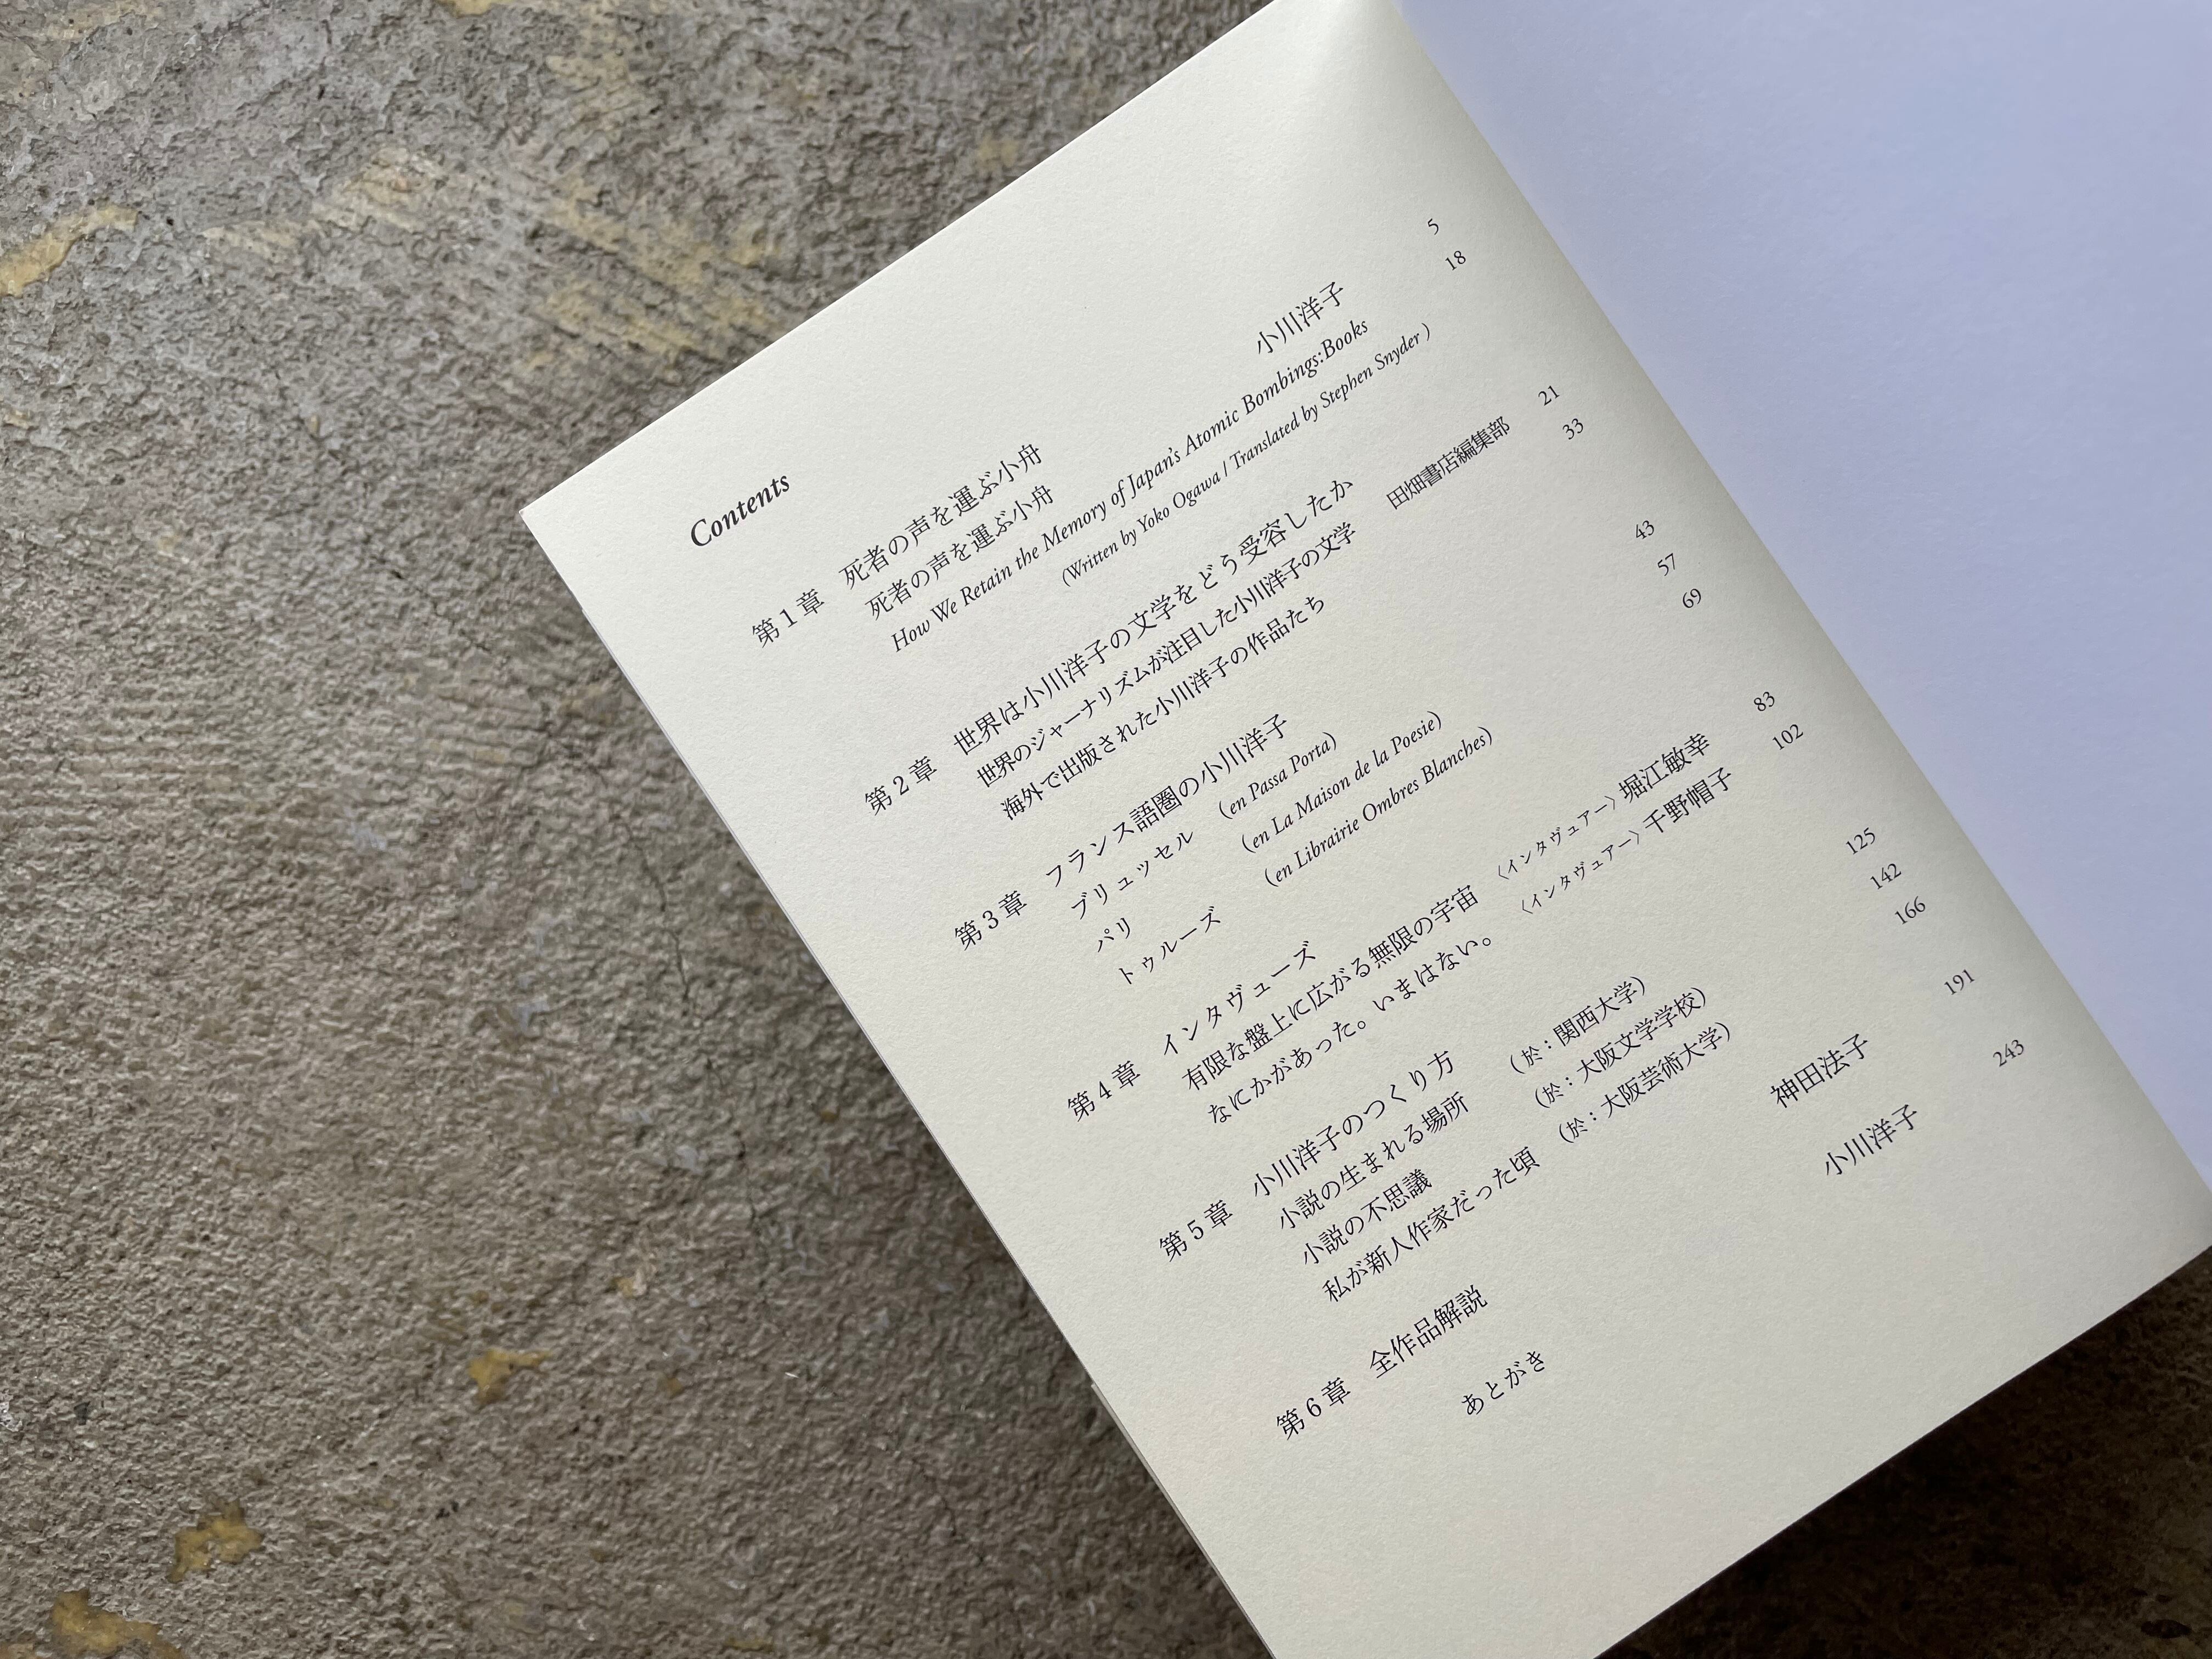 Contents
第1章 死者の声を運ぶ小舟
死者の声を運ぶ小舟 小川洋子 5
How We Retain the Memory of Japan's Atomic Bombings:Books 18
(Written by Yoko Ogawa / Translated by Stephen Snyder )
第2章 世界は小川洋子の文学をどう受容したか
世界のジャーナリズムが注目した小川洋子の文学 田畑書店編集部 21
海外で出版された小川洋子の作品たち 33
第3章 フランス語圏の小川洋子
ブリュッセル (en Passa Porta) 43
パリ (en La Maison de la Poesie) 57
トゥルーズ (en Librairie Ombres Blanches) 69
第4章 インタヴューズ
有限な盤上に広がる無限の宇宙 〈インタヴュアー〉堀江敏幸 83
なにかがあった。いまはない。 〈インタヴュアー〉千野帽子 102
第5章 小川洋子のつくり方
小説の生まれる場所 (於：関西大学) 125
小説の不思議 (於：大阪文学学校) 142
私が新人作家だった頃 (於：大阪芸術大学) 166
第6章 全作品解説 神田法子 191
あとがき 小川洋子 243